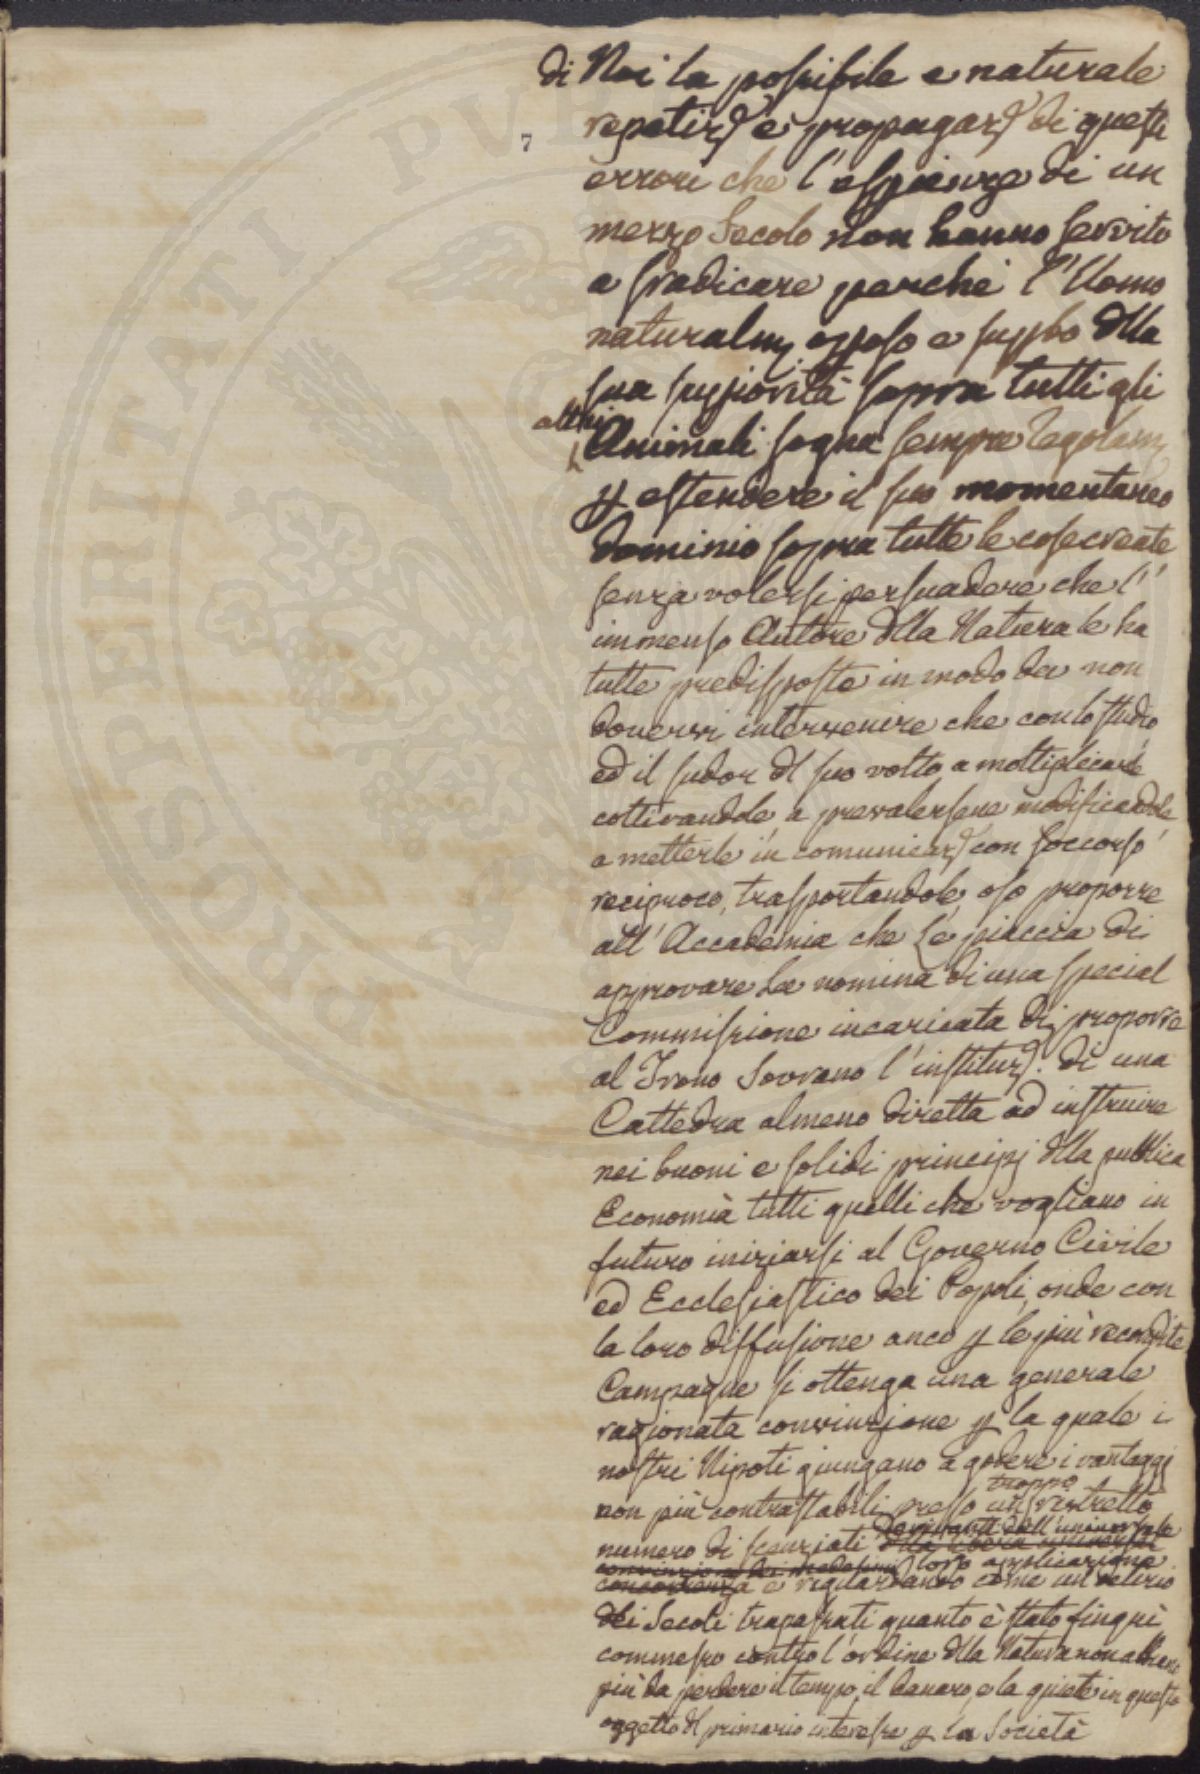 di Noi la possibile e naturale
repetiz.e e propagaz.e di questi
errori che l'esperienze di un
mezzo Secolo non hanno servito
a sradicare perchè l'Uomo
naturalm. orgoso e superbo della
sua superiorità sopra tutti gli
altri
Animali sogna sempre regolarm.
p estendere il suo momentaneo
dominio sopra tutte le cose create
senza volersi persuadere che l'
immenso Autore della Natura le ha
tutte predisposte in modo da non
dovervi intervenire che con lo studio
ed il sudor del suo volto a moltiplicarle
coltivandole, a prevalersene modificandole
a metterle in comunicaz.e con soccorso
reciproco, trasportandole, oso proporre
all'Accademia che Le piaccia di
approvare La nomina di una special
Commissione incaricata di proporre
al Trono Sovrano l'instituz.e di una
Cattedra almeno diretta ad instruire
nei buoni e solidi principj della pubblica
Economia tutti quelli che vogliano in
futuro iniziarsi al Governo Civile
ed Ecclesiastico dei Popoli, onde con
la loro diffusione anco p le più recondite
Campagne si ottenga una generale
ragionata convinzione p la quale i
nostri Nipoti giungano a godere i vantaggi
troppo
non più contrastabili presso un ristretto
derivanti dall'universale
numero di scenziati della libera universal
convinzione dei medesimi loro applicazione
concorrenza e riguardando come un delirio
dei Secoli trapassati quanto è stato fin qui
commesso contro l'ordine della Natura non abbiano
più da perdere il tempo, il danaro, e la quiete in questo
oggetto del primario interesse p la Società
7
PROSPERITATI